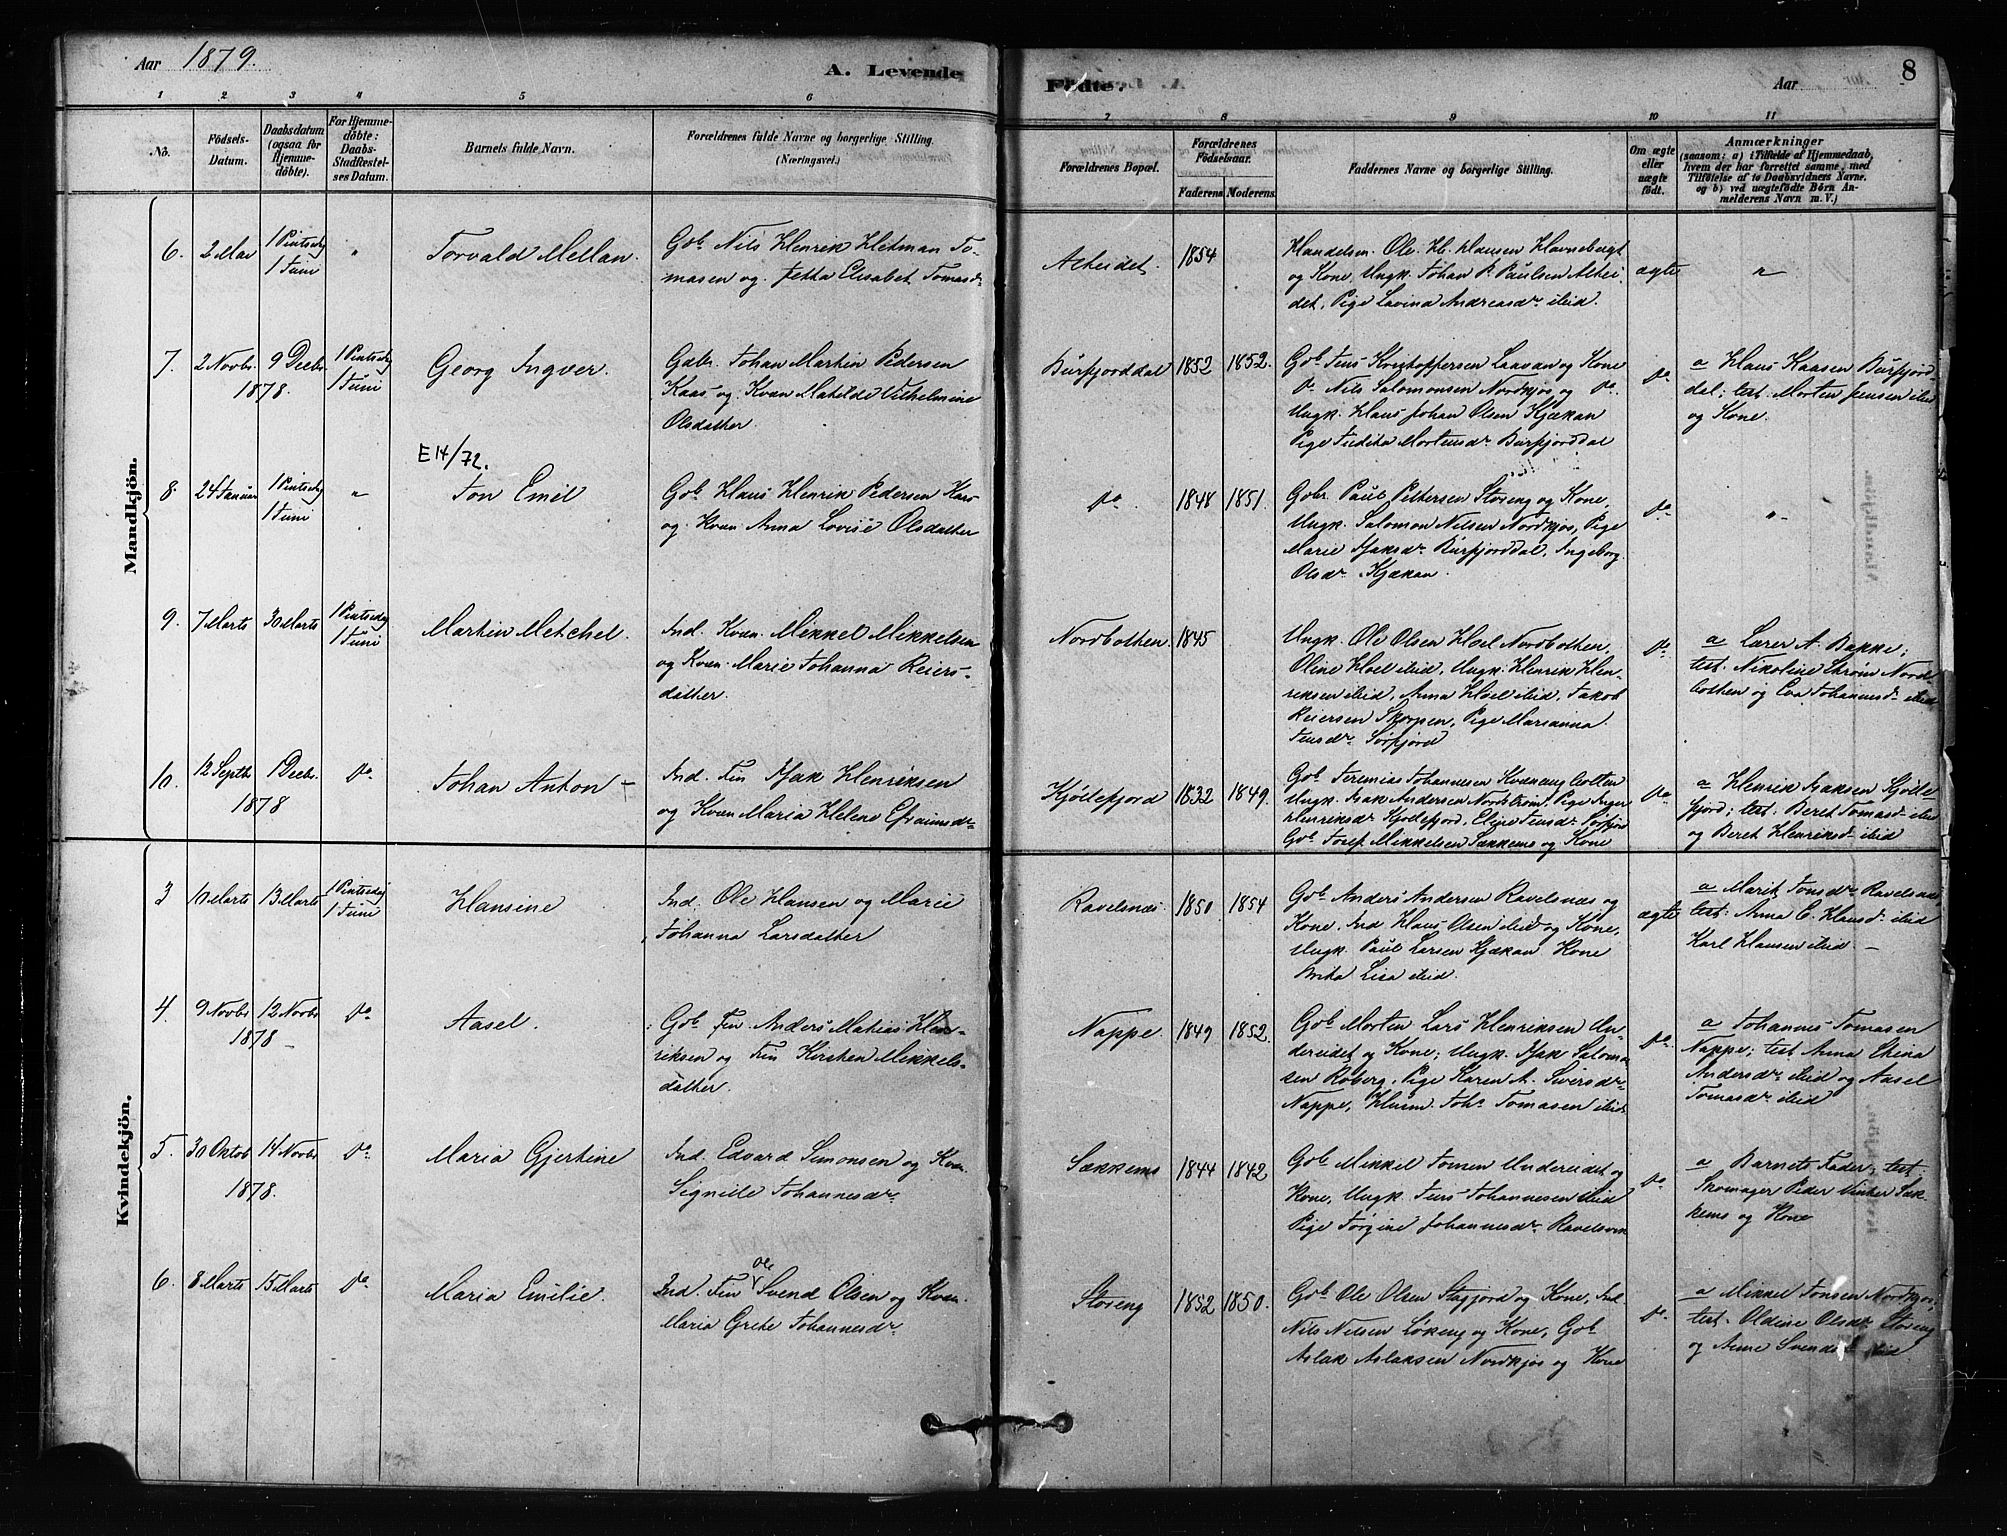 Aar 1879.
A. Levende
Fødte.
Aar
8
1 2 3 4 5 6 7 8 9 10 11
No.
Födsels-
Datum.
Daabsdatum
(ogsaa for
Hjemme-
döbte).
For Hjemme-
döbte:
Daabs-
Stadfæstel-
ses Datum.
Barnets fulde Navn.
Forældrenes fulde Navne og borgerlige Stilling.
(Næringsvei.)
Forældrenes Bopæl.
Forældrenes
Födselsaar.
Faderens Moderens
Faddernes Navne og borgerlige Stilling.
Om ægte
eller
uægte
födt.
Anmærkninger
(saasom: a) i Tilfælde af Hjemmedaab,
hvem der har forrettet samme, med
Tilföielse af to Daabsvidners Navne,
og b) ved uægtefödte Börn An-
melderens Navn m. V.)
Mandkjön.
6. 2 Mai
1 Pintsedag
1 Juni
"
Torvald Mellan.
Gb. Nils Henrik Hetman To-
masen og Jetta Elisabet Tomasdr
Alteidet.
1854
Handelsm. Ole H. Hansen Havnebergt
og Kone, Ungk. Johan P. Paulsen Altei-
det, Pige Lavina Andreasdr ibid.
ægte
"
7. 2 Novbr.
1878.
9 Decbr.
1 Pintsedag
1 Juni
Georg Ingver.
Gbr. Johan Martin Pedersen
Kaas og Kvæn Matilde Vilhelmine
Olsdatter.
Burfjorddal
1852
1852.
Gb. Jens Kristoppersen Laavan og Kone
Do Nils Salomonsen Nordkjos og Do.
Ungk. Hans Johan Olsen Kjækan
Pige Judita Mortensdr Burfjorddal
Do
a Hans Kaasen Burfjord-
dal; test. Morten Jensen ibid
og Kone.
E 14/72.
8. 24 Januar
1 Pintsedag
1 Juni
"
Jon Emil
Gb. Hans Henrik Pedersen Kaas
og Kvæn Anna Lovise Olsdatter
Do.
1848
1851.
Gbr. Paul Pettersen Storeng og Kone,
Ungk. Salomon Nilsen Nordkjos, Pige
Marie Isaksdr Burfjorddal, Ingeborg
Olsdr Kjækan.
Do
"
9. 7 Marts
30 Marts
1 Pintsedag
1 Juni
Martin Metchel.
Ind. Kvæn. Mikkel Mikkelsen
og Kvæn Marie Johanna Reiers-
datter.
Nordbotten.
1845
Ungk. Ole Olsen Hoel Nordbotten,
Oline Hoel ibid, Ungk. Henrik Hen-
riksen ibid, Anna Hoel ibid, Jakob
Reiersen Skorpen, Pige Marianna
Jensdr Sørfjord
Do
a Lærer A. Bakke;
test. Nikoline Strøm Nord-
botten og Eva Johannesdr ibid
10. 12 Septb.
1878
1 Decbr.
Do
Johan Anton
Ind. Fin Isak Henriksen
og Kvæn Maria Helene Efraimsdr
Kjøllefjord
1832
1849.
Gb. Jeremias Johannesen Kvænangbotten
Ungk. Isak Andersen Nordstrøm, Pige Inger
Henriksdr Kjøllefjord, Eline Jensdr Sørfjord
Gb. Josef Mikkelsen Sækkems og Kone
Do
a Henrik Isaksen Kjølle-
fjord; test. Beret Tomasdr ibid
og Beret Henriksdr ibid
Kvindekjön.
3 10 Marts
13 Marts
1 Pintsedag
1 Juni
Hansine
Ind. Ole Hansen og Marie
Johanna Larsdatter
Ravelsnæs
1850
1854
Gb. Anders Andersen Ravelsnæs og
Kone, Ind Hans Olsen ibid og Kone,
Ungk. Paul Larsen Kjækan Kone
Brita Lisa ibid.
ægte
a Marit Jonsdr Ravelsnæs,
test: Anna C. Hansdr ibid
Karl Hansen ibid
4. 9 Novbr
1878
12 Novbr
Do
Aasel.
Gb. Fin Anders Matias Hen-
riksen og Fin Kirsten Mikkels-
datter.
Nappe.
1849
1852.
Gb. Morten Lars Henriksen Un-
dereidet og Kone; Ungk. Isak Salomon-
sen Roberg, Pige Karen A. Siversdr
Nappe, Husm Johs Tomasen ibid
Do.
a Johannes Tomasen
Nappe; test Anna Stina
Andersdr ibid og Aasel
Tomasdr ibid
5. 30 Oktob
1878.
14 Novbr
Do.
Maria Gjertine
Ind. Edvard Simonsen og Kvæn
Signille Johannesdr
Sækkems
1844
1842
Gb. Mikkel Jonsen Undereidet og
Kone, Ungk. Jens Johannesen ibid
Pige Jørgine Johannesdr Ravelsnæs
Do
a Barnets Fader; test
Skomager Peder Sæk-
kems og Kone
6. 8 Marts
15 Marts
Do
Maria Emilie
Ind. Fin Ole Svend Olsen og Kvæn
Maria Grete Johannesdr
Storeng
1852
1850.
Gb. Ole Olsen Stajord og Kone, Ind.
Nils Nilsen Løkeng og Kone, Gb
Aslak Aslaksen Nordkjos og Kone
Do.
a Mikkel Jonsen Nordkjos;
test. Oldine Olsdr Storeng
og Arne Svends ibid